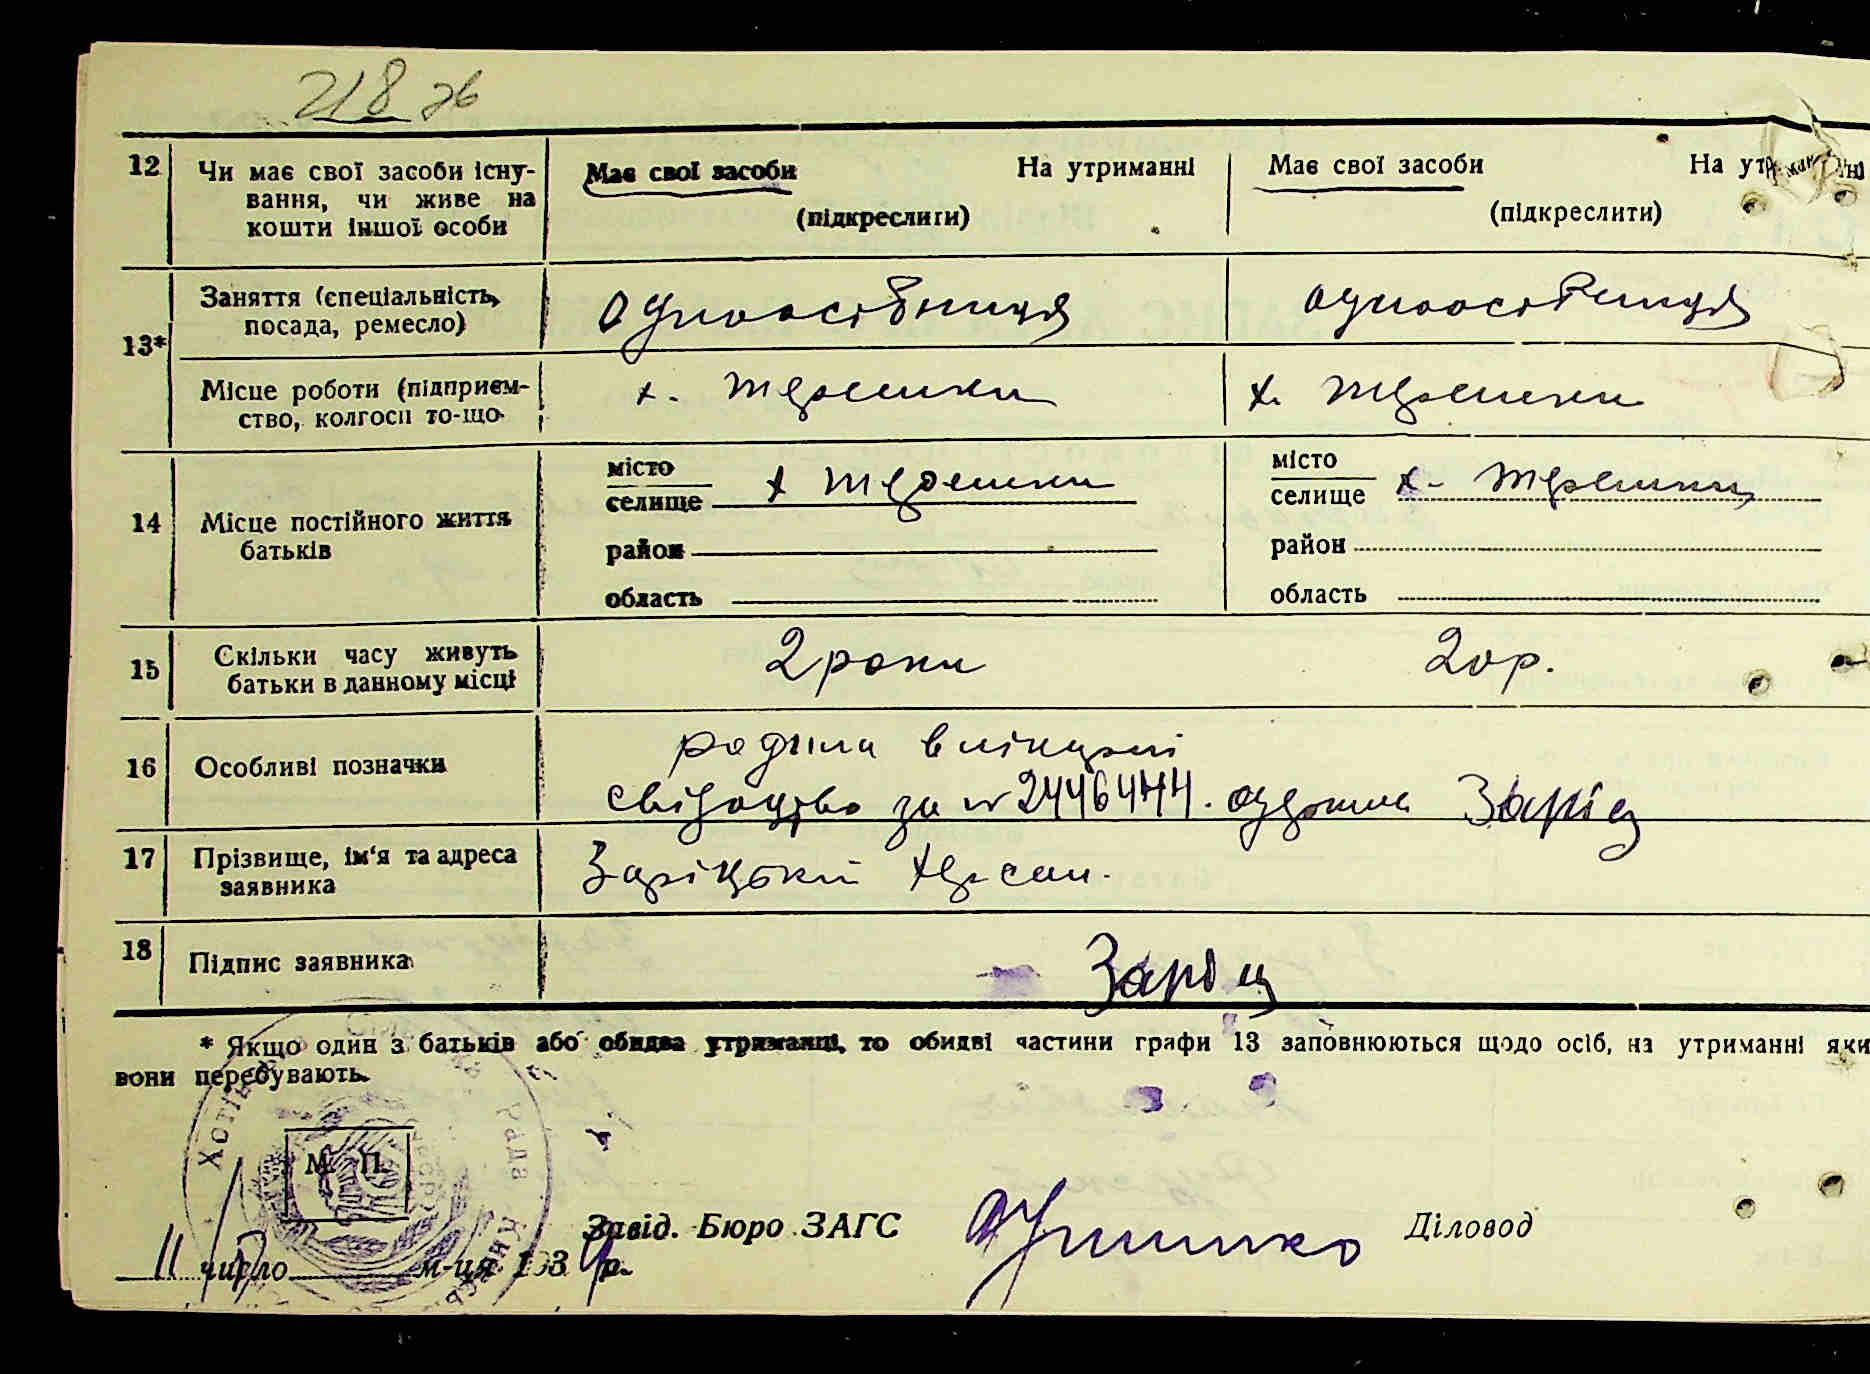 218 зв
12 Чи має свої засоби існу- Має свої засоби На утриманні Має свої засоби На утриманні
вання, чи живе на
кошти іншої особи (підкреслити) (підкреслити)
13* Заняття (спеціальність, одноосібниця одноосібниця
посада, ремесло)
Місце роботи (підприєм- х. Терешки х. Терешки
ство, колгосп то-що
14 Місце постійного життя батьків
місто місто
селище х Терешки селище х. Терешки
район район
область область
15 Скільки часу живуть 2 роки 20р.
батьки в данному місці
16 Особливі позначки родила
свідоцтво за № 2446444. одержив Заріц
17 Прізвище, ім'я та адреса Заріцький
заявника
18 Підпис заявника Заріц
* Якщо один з батьків або обидва утриманці, то обидві частини графи 13 заповнюються щодо осіб, на утриманні яки
вони перебувають.
М. П.
Рада
Завід. Бюро ЗАГС Діловод
11 число м-ця 193 р.